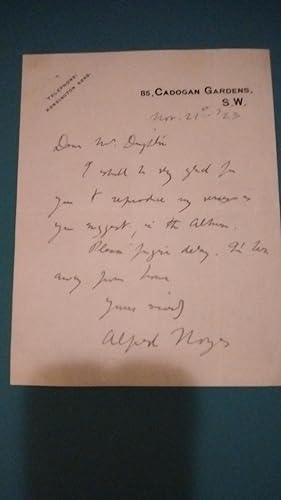 TELEPHONE:
KENSINGTON
85, CADOGAN GARDENS,
S.W.
Nov. 21st '23
Dear Mr.
I shall be very glad for
you to reproduce my verses as
you suggest, in the Album.
Please forgive delay. I've been
away from home
Yours sincerely
Alfred Noyes